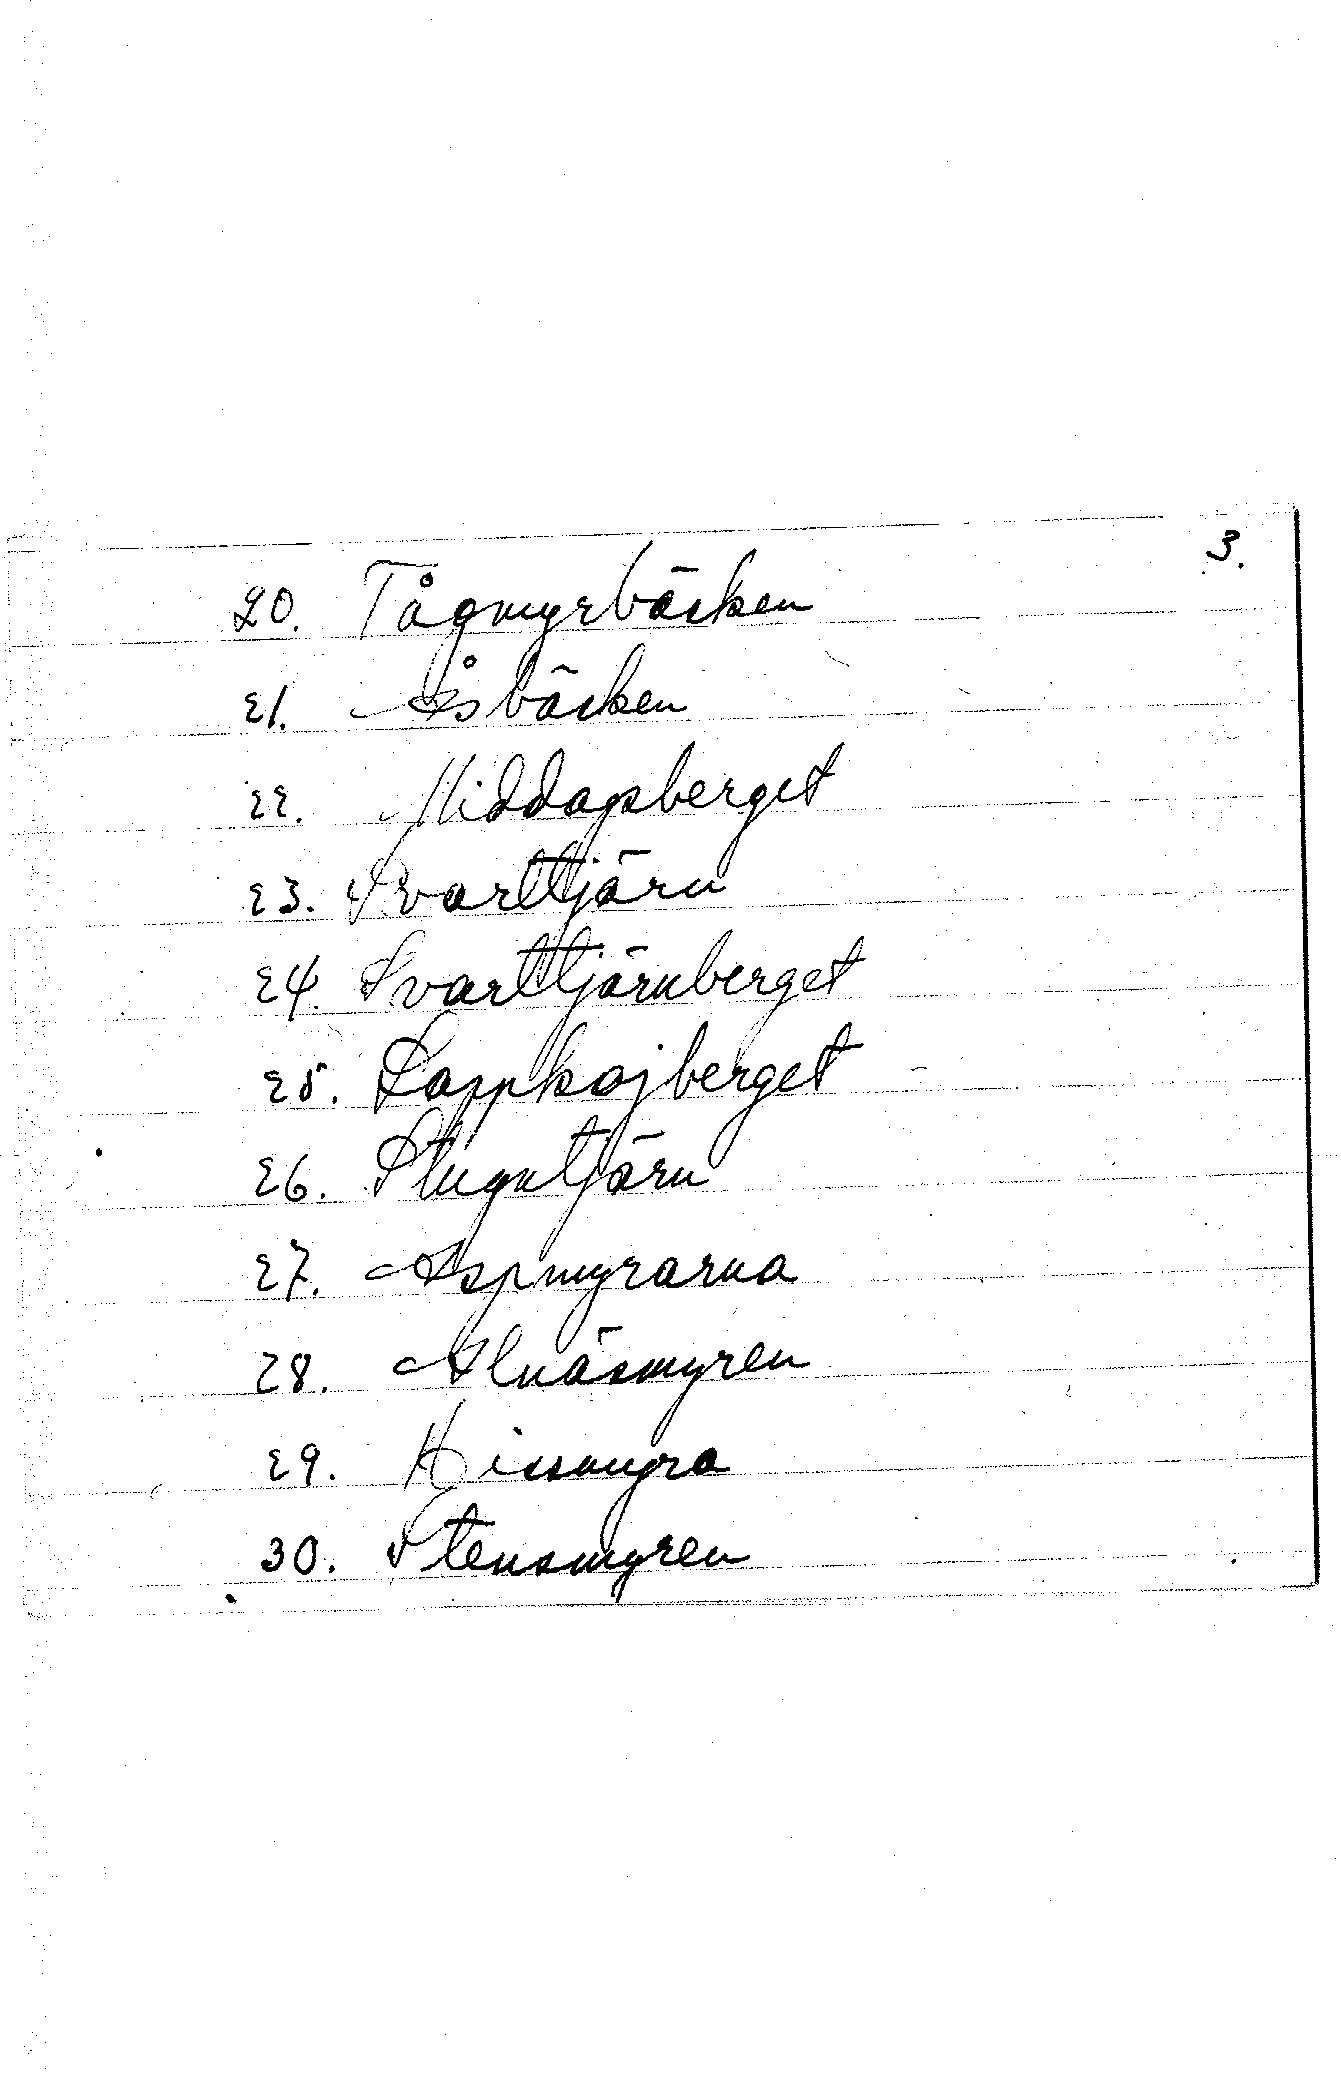 3.
20. Tågmyrbäcken
21. Åsbäcken
22. Middagsberget
23. Svarttjärn
24. Svarttjärnberget
25. Lappkojberget
26. Stugutjärn
27. Aspmyrarna
28. Alnäsmyren
29. Kissmyra
30. Stensmyren